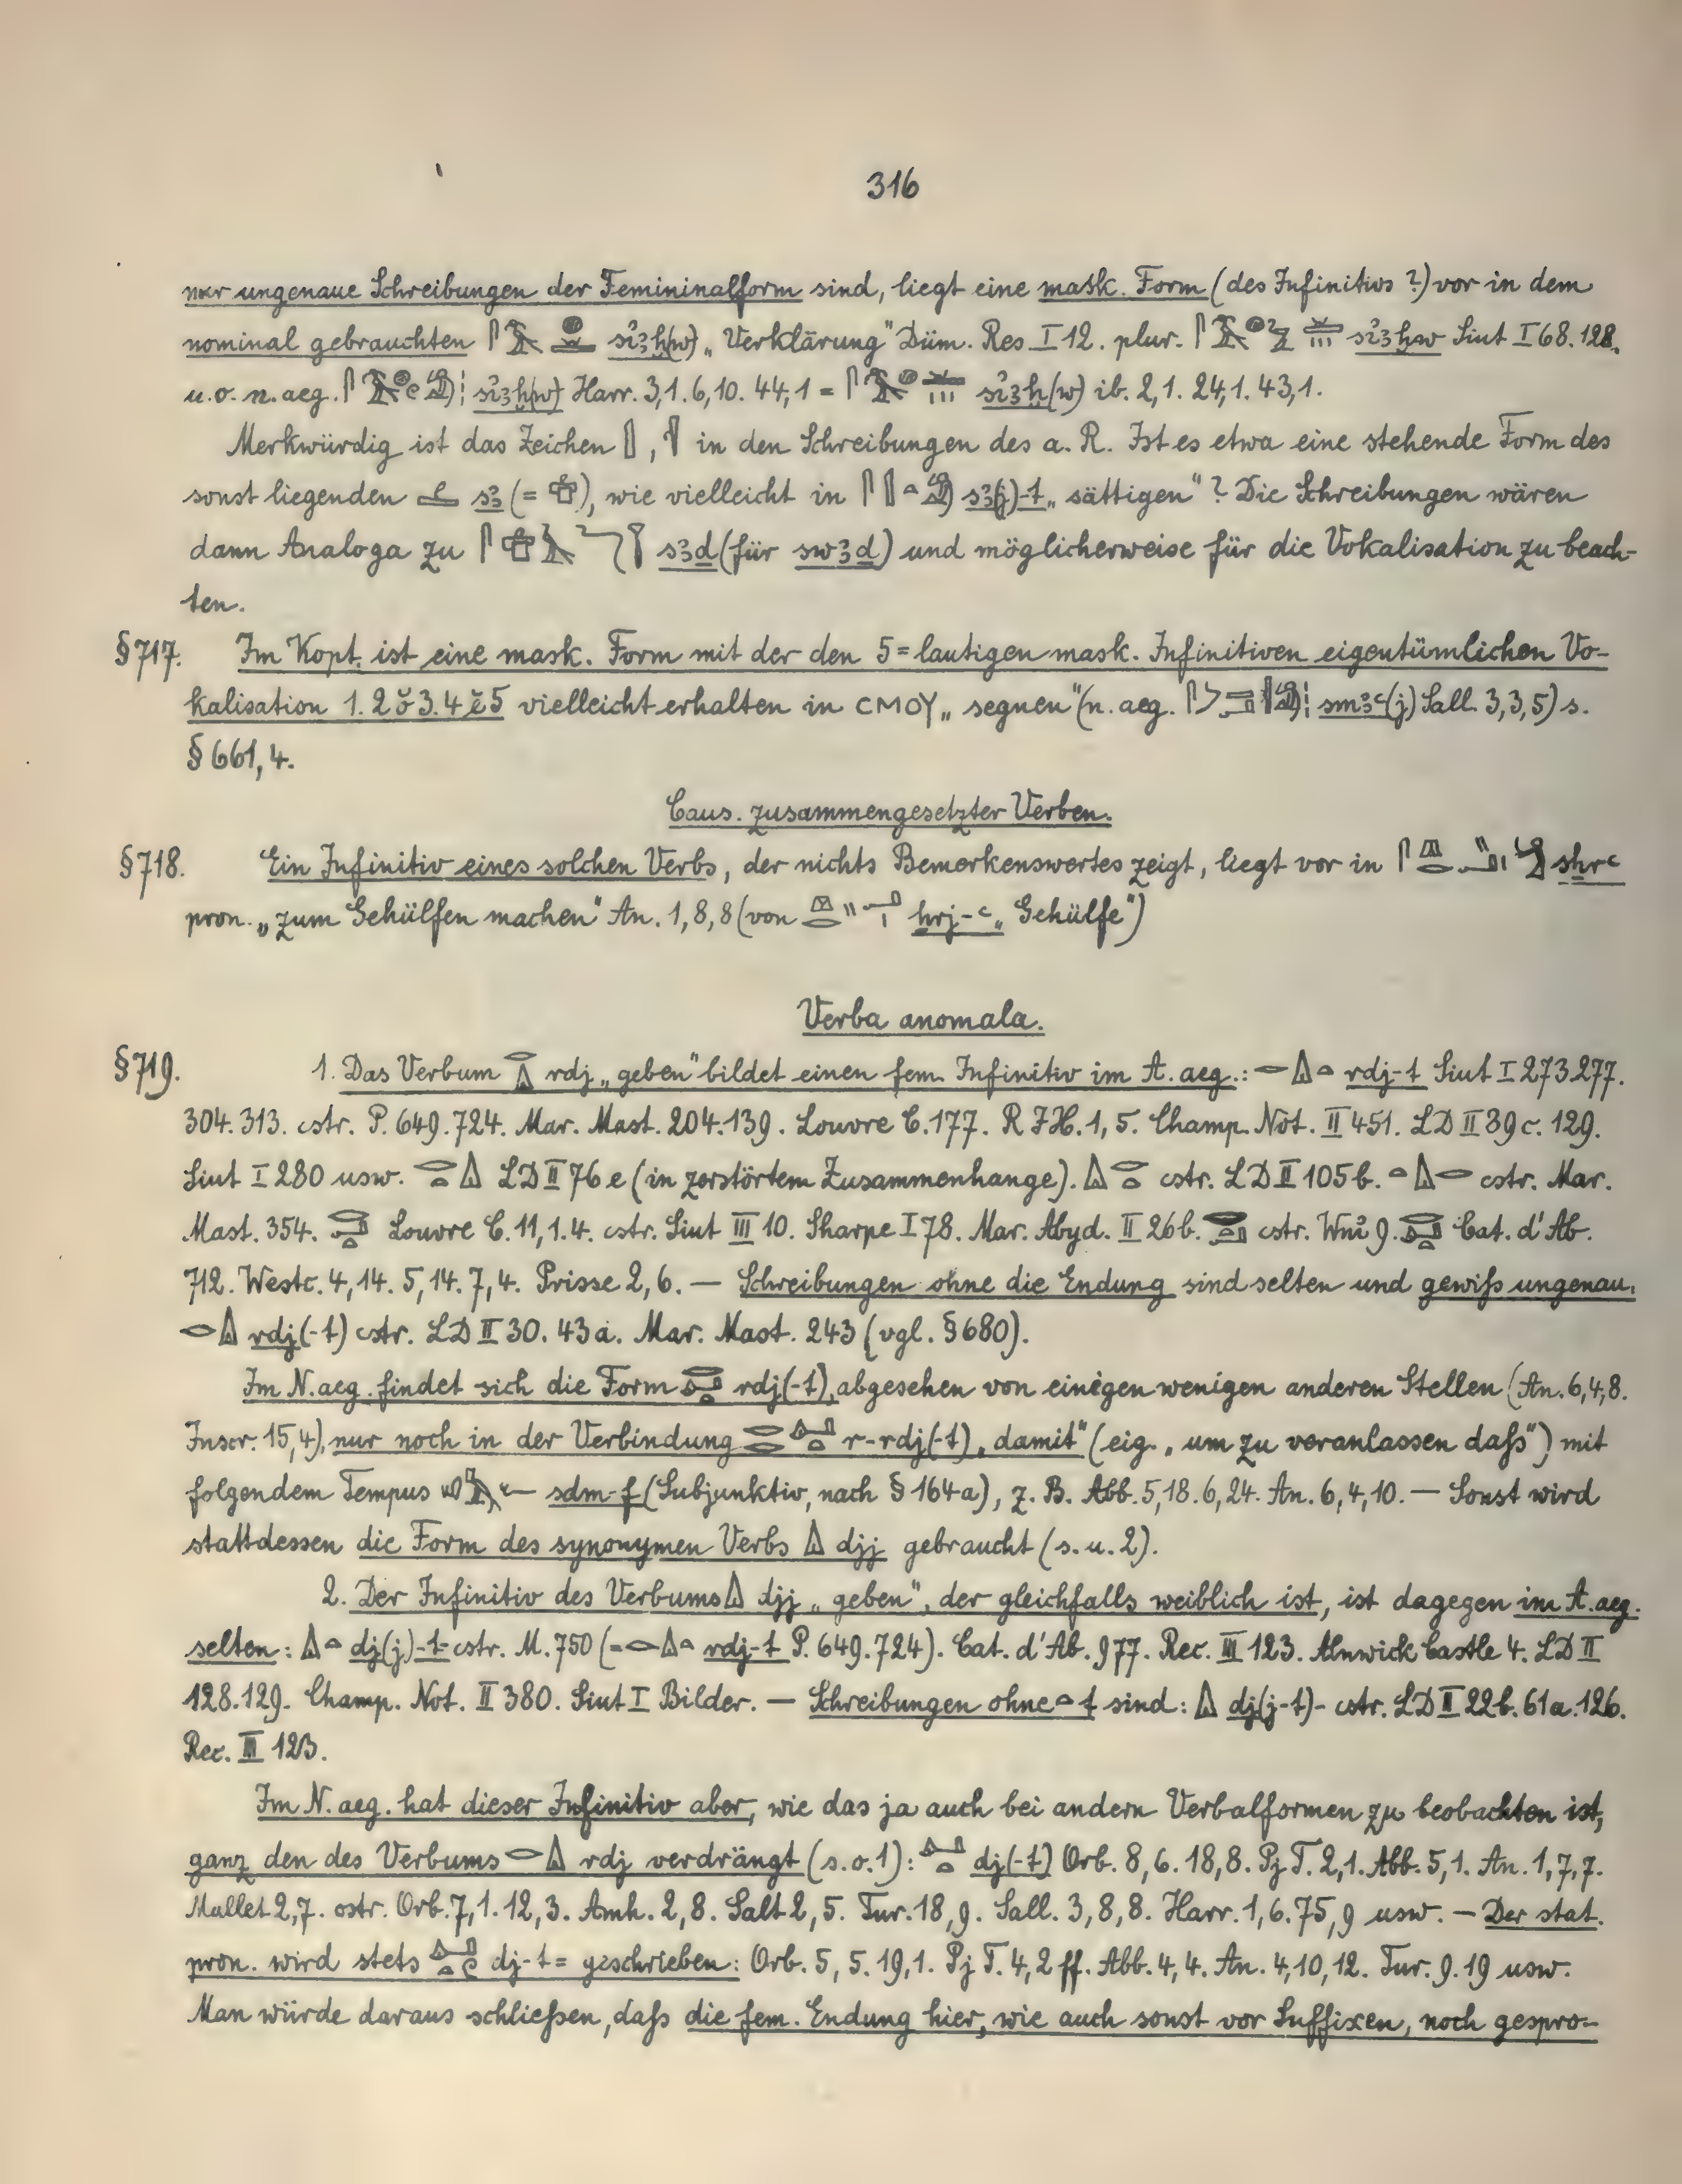 316
nur ungenaue Schreibungen der Femininalform sind, liegt eine mask. Form (des Infinitivs ?) vor in dem
nominal gebrauchten sꞽꜣḫ(w) „Verklärung" Düm. Res I 12. plur. sꞽꜣḫw Siut I 68. 128.
u. o. n. aeg. sꞽꜣḫ(w) Harr. 3,1. 6,10. 44,1 = sꞽꜣḫ(w) ib. 2,1. 24,1. 43,1.
Merkwürdig ist das Zeichen , in den Schreibungen des a. R. Ist es etwa eine stehende Form des
sonst liegenden sꜣ (= ), wie vielleicht in sꜣ(j)-t „sättigen"? Die Schreibungen wären
dann Analoga zu sꜣḏ (für swꜣḏ) und möglicherweise für die Vokalisation zu beach-
ten.
§717. Im Kopt. ist eine mask. Form mit der den 5=lautigen mask. Infinitiven eigentümlichen Vo-
kalisation 1. 2 ŏ 3. 4 ĕ 5 vielleicht erhalten in ⲤⲘⲞⲨ „segnen" (n. aeg. smꜣꜥ(j) Sall. 3,3,5) s.
§ 661, 4.
Caus. zusammengesetzter Verben.
§718. Ein Infinitiv eines solchen Verbs, der nichts Bemerkenswertes zeigt, liegt vor in sḥrꜥ
pron. „zum Gehülfen machen" An. 1, 8, 8 (von ḥrj-ꜥ „Gehülfe")
Verba anomala.
§719. 1. Das Verbum rdj „geben" bildet einen fem. Infinitiv im A. aeg.: rdj-t Siut I 273. 277.
304. 313. cstr. P. 649. 724. Mar. Mast. 204. 139. Louvre C. 177. R J H. 1, 5. Champ. Not. II 451. LD II 39 c. 129.
Siut I 280 usw. LD II 76 e (in zerstörtem Zusammenhange). cstr. LD II 105 b. cstr. Mar.
Mast. 354. Louvre C. 11, 1. 4. cstr. Siut III 10. Sharpe I 78. Mar. Abyd. II 26 b. cstr. Wnꞽ 9. Cat. d'Ab.
712. Westc. 4, 14. 5, 14. 7, 4. Prisse 2, 6. — Schreibungen ohne die Endung sind selten und gewiß ungenau.
rdj(-t) cstr. LD II 30. 43 a. Mar. Mast. 243 (vgl. § 680).
Im N. aeg. findet sich die Form rdj(-t), abgesehen von einigen wenigen anderen Stellen (An. 6, 4, 8.
Inscr. 15, 4), nur noch in der Verbindung r-rdj(-t) „damit" (eig. „um zu veranlassen daß") mit
folgendem Tempus sḏm-f (Subjunktiv, nach § 164 a), z. B. Abb. 5, 18. 6, 24. An. 6, 4, 10. — Sonst wird
stattdessen die Form des synonymen Verbs djj gebraucht (s. u. 2).
2. Der Infinitiv des Verbums djj „geben", der gleichfalls weiblich ist, ist dagegen im A. aeg.
selten: dj(j)-t cstr. M. 750 (= rdj-t P. 649. 724). Cat. d'Ab. 977. Rec. III 123. Alnwick Castle 4. LD II
128. 129. Champ. Not. II 380. Siut I Bilder. — Schreibungen ohne t sind: dj(j-t)- cstr. LD II 22 b. 61 a. 126.
Rec. III 123.
Im N. aeg. hat dieser Infinitiv aber, wie das ja auch bei andern Verbalformen zu beobachten ist,
ganz den des Verbums rdj verdrängt (s. o. 1): dj(-t) Orb. 8, 6. 18, 8. Pj T. 2, 1. Abb. 5, 1. An. 1, 7, 7.
Mallet 2, 7. cstr. Orb. 7, 1. 12, 3. Amh. 2, 8. Salt 2, 5. Tur. 18, 9. Sall. 3, 8, 8. Harr. 1, 6. 75, 9 usw. — Der stat.
pron. wird stets dj-t= geschrieben: Orb. 5, 5. 19, 1. Pj T. 4, 2 ff. Abb. 4, 4. An. 4, 10, 12. Tur. 9. 19 usw.
Man würde daraus schließen, daß die fem. Endung hier, wie auch sonst vor Suffixen, noch gespro-